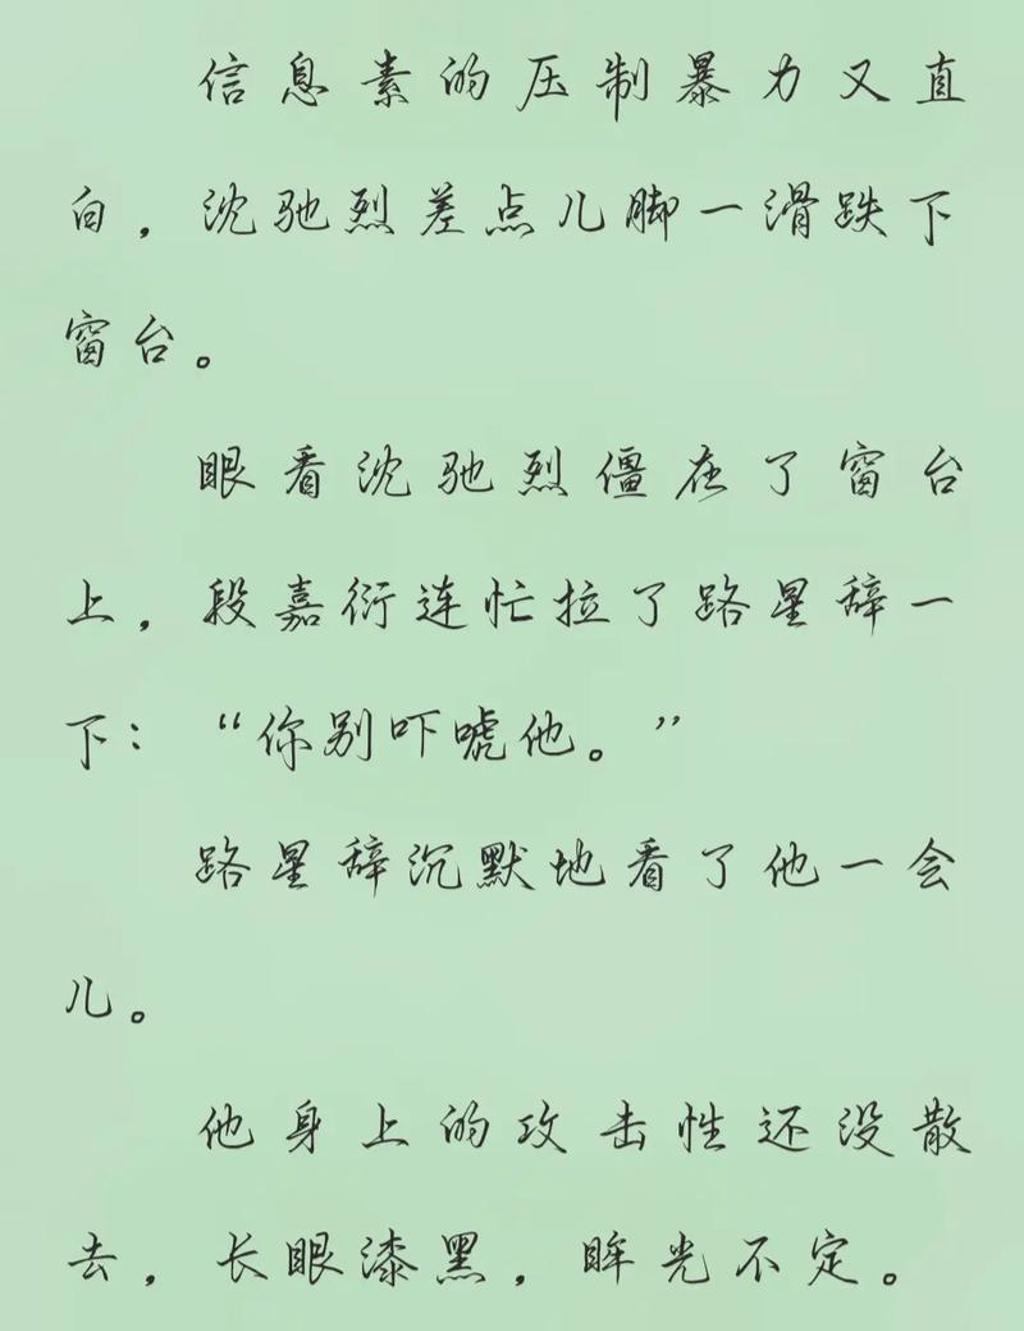 信息素的压制暴力又直
白，沈驰烈差点儿脚一滑跌下
窗台。
眼看沈驰烈僵在了窗台
上，段嘉衍连忙拉了路星辞一
下：“你别吓唬他。”
路星辞沉默地看了他一会
儿。
他身上的攻击性还没散
去，长眼漆黑，眸光不定。